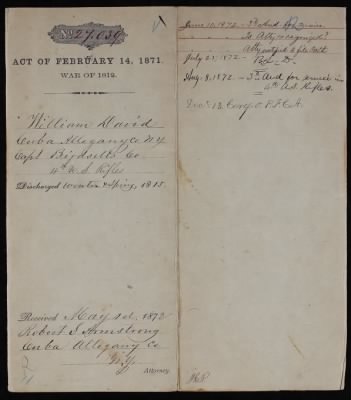 No. 27,039
ACT OF FEBRUARY 14, 1871.
WAR OF 1812.
William David
Cuba Allegany Co N.Y.
Capt Birdsall's Co
4th U.S. Rifles
Discharged Winter & Spring, 1815.
Received May 1st, 1872
Robert S Armstrong
Cuba Allegany Co
N.Y.
Attorney.
June 10, 1872 - 3d Aud
Is Atty recognized?
Atty
July 23, 1872 -
Aug. 8, 1872 - 3d Aud for service in
4th U.S. Rifles.